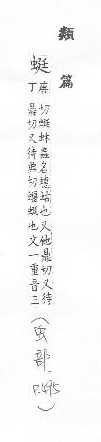 類篇
蜓唐丁切蜓蚞蟲名蟪蛄也又他鼎切又待鼎切又待典切蝘蜓也文一重音三(虫部、P.495)